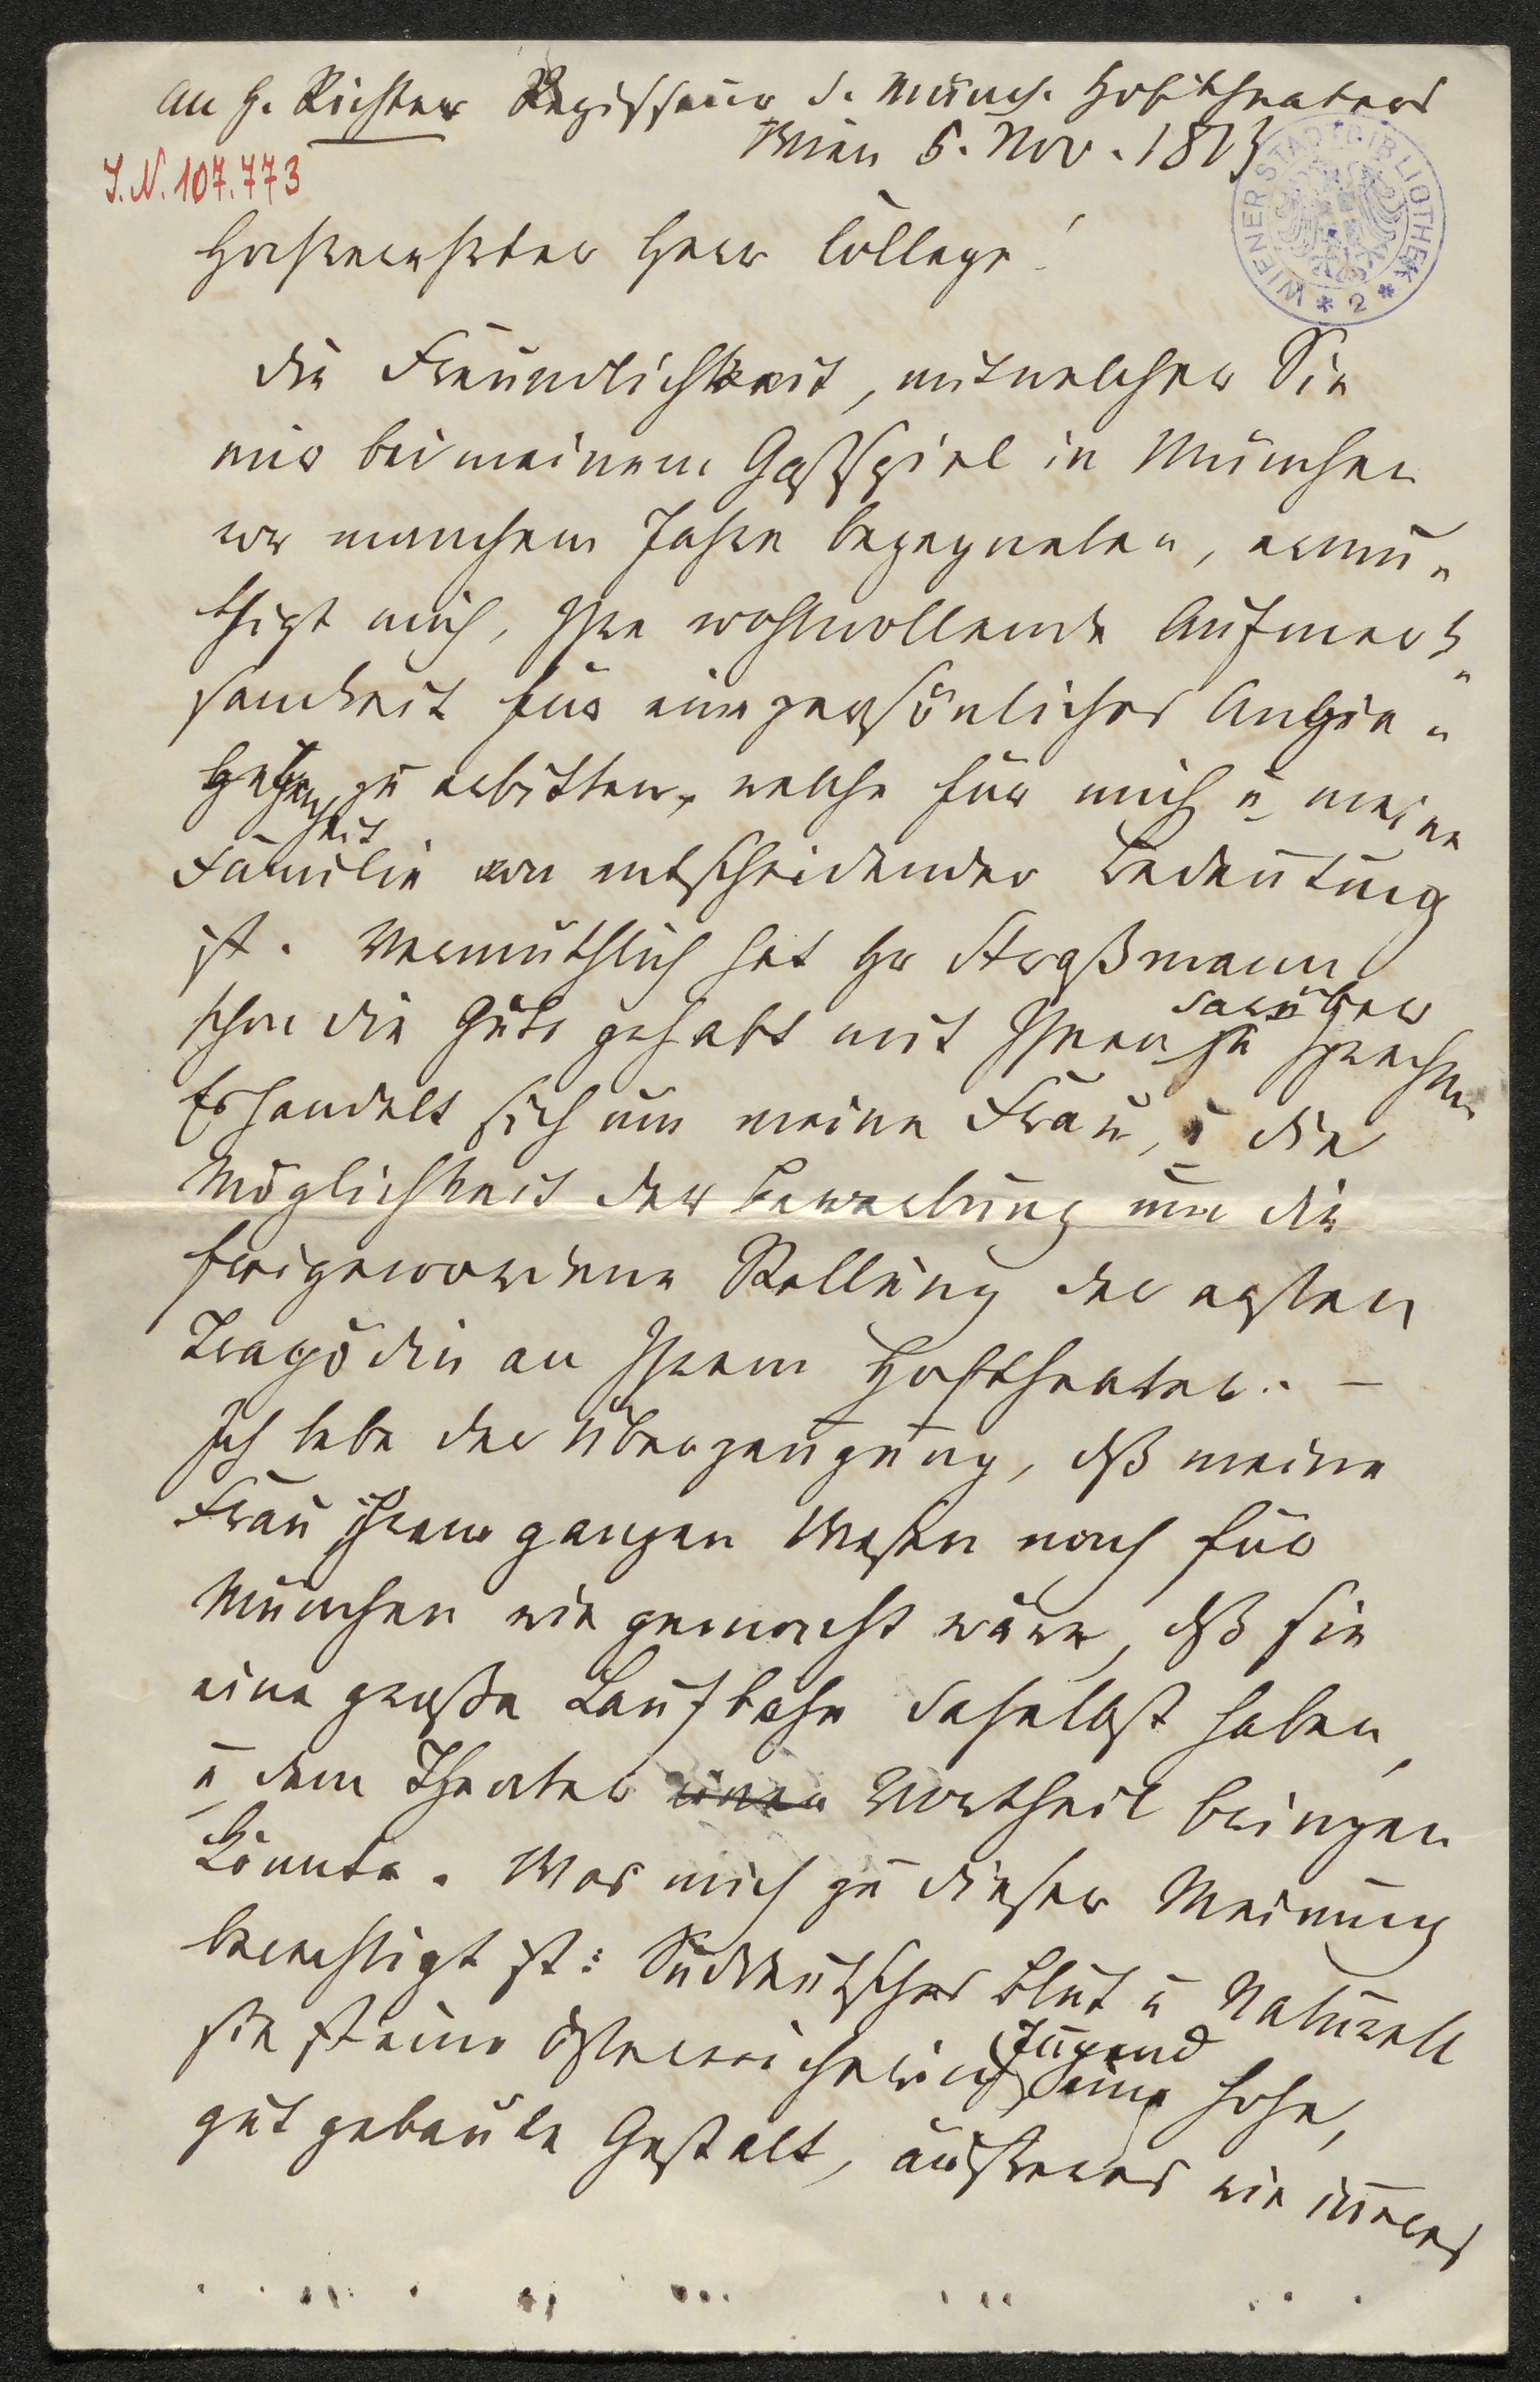 An H. Richter Regisseur d. Münch. Hoftheaters
Wien 6. Nov. 1873
J.N. 107.773
WIENER STADTBIBLIOTHEK * 2 *
Hochverehrter Herr College!
die Freundlichkeit, mit welcher Sie
mir bei meinem Gastspiel in München
vor manchem Jahre begegneten, ermu-
thigt mich, Ihre wohlwollende Aufmerk-
samkeit für eine persönliches
zu erbitten, welche für mich u meine
Familie von entscheidender Bedeutung
ist. Vermuthlich hat Hr Straßmann
schon die Güte gehabt mit Ihnen darüber zu sprechen
Es handelt sich um meine Frau, u die
Möglichkeit der Bewerbung um die
freigewordene Stellung der ersten
Tragödin an Ihrem Hoftheater. –
Ich lebe der Überzeugung, dß meine
Frau ihrem ganzen Wesen nach für
München wie gemacht wäre, dß sie
eine große Laufbahn daselbst haben,
u dem Theater einen Vortheil bringen
könnte. Was mich zu dieser Meinung
berechtigt ist: Süddeutsches Blut u Naturell
sie ist eine Österreicherin Jugend eine hohe,
gut gebaute Gestalt, äußeres wie inneres